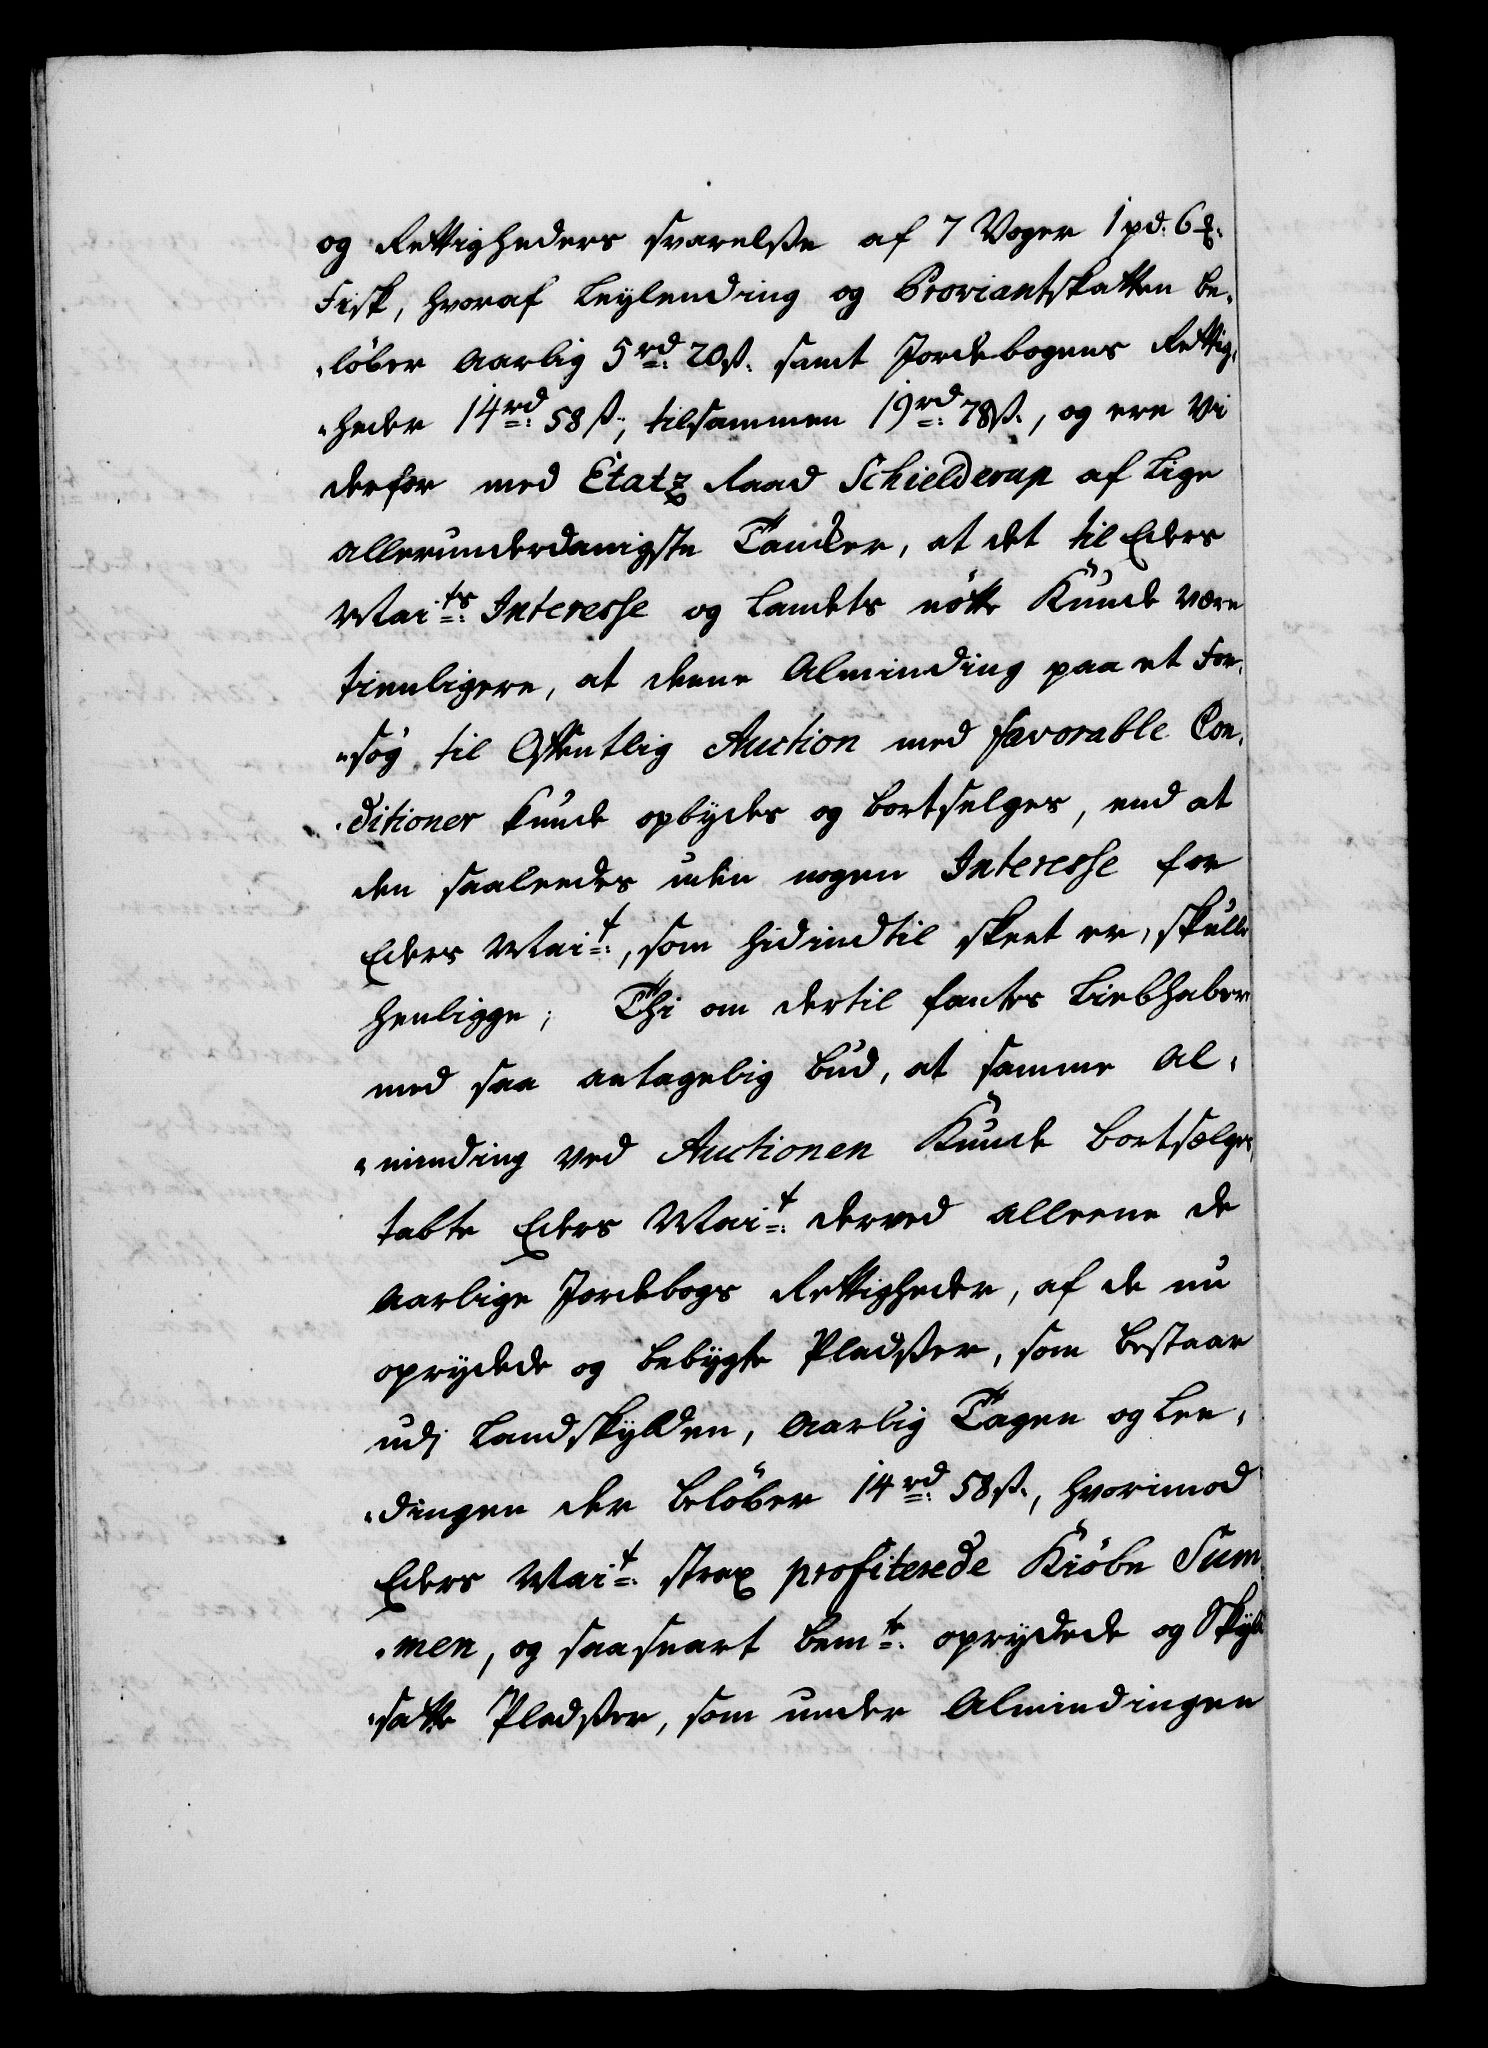 og Rettigheders svarelsse af 7 Voger 1 pd: 6 ℔.
Fisk, hvoraf Leylending og Proviantskatten be,
„løber Aarlig 5 rd: 20 ß. samt Jordebogens Rettig,
„heder 14 rd: 58 ß:, tilsammen 19 rd: 78 ß., og ere Vi
derfor med Etatz Raad Schielderup af Lige
allerunderdanigste Tancker, at det til Eders
Mai:ts Interesse og Landets nötte Kunde være
tienligere, at denne Alminding paa et For,
„søg til Offentlig Auction med favorable Con,
„ditioner kunde opbydes og bortselges, end at
den saaleedes uden nogen Interesse for
Eders Mai:t, som hidindtil skeet er, skulle
henligge; Thi om dertil fantes Liebhabere
med saa antagelig bud, at samme Al,
„minding ved Auctionen Kunde bortsælges,
tabte Eders Mai:t derved alleene de
Aarlige Jordebogs Rettigheder, af de nu
oprydede og bebygte Pladsser, som bestaar
udj Landskylden, Aarlig Tagen og Lee,
„dingen der beløber 14 rd: 58 ß., hvorimod
Eders Mai:t strax profiterede Kiøbe Sum
„men, og saasnart bem:te oprydede og Skyld
„satte Pladsser, som under Almindingen